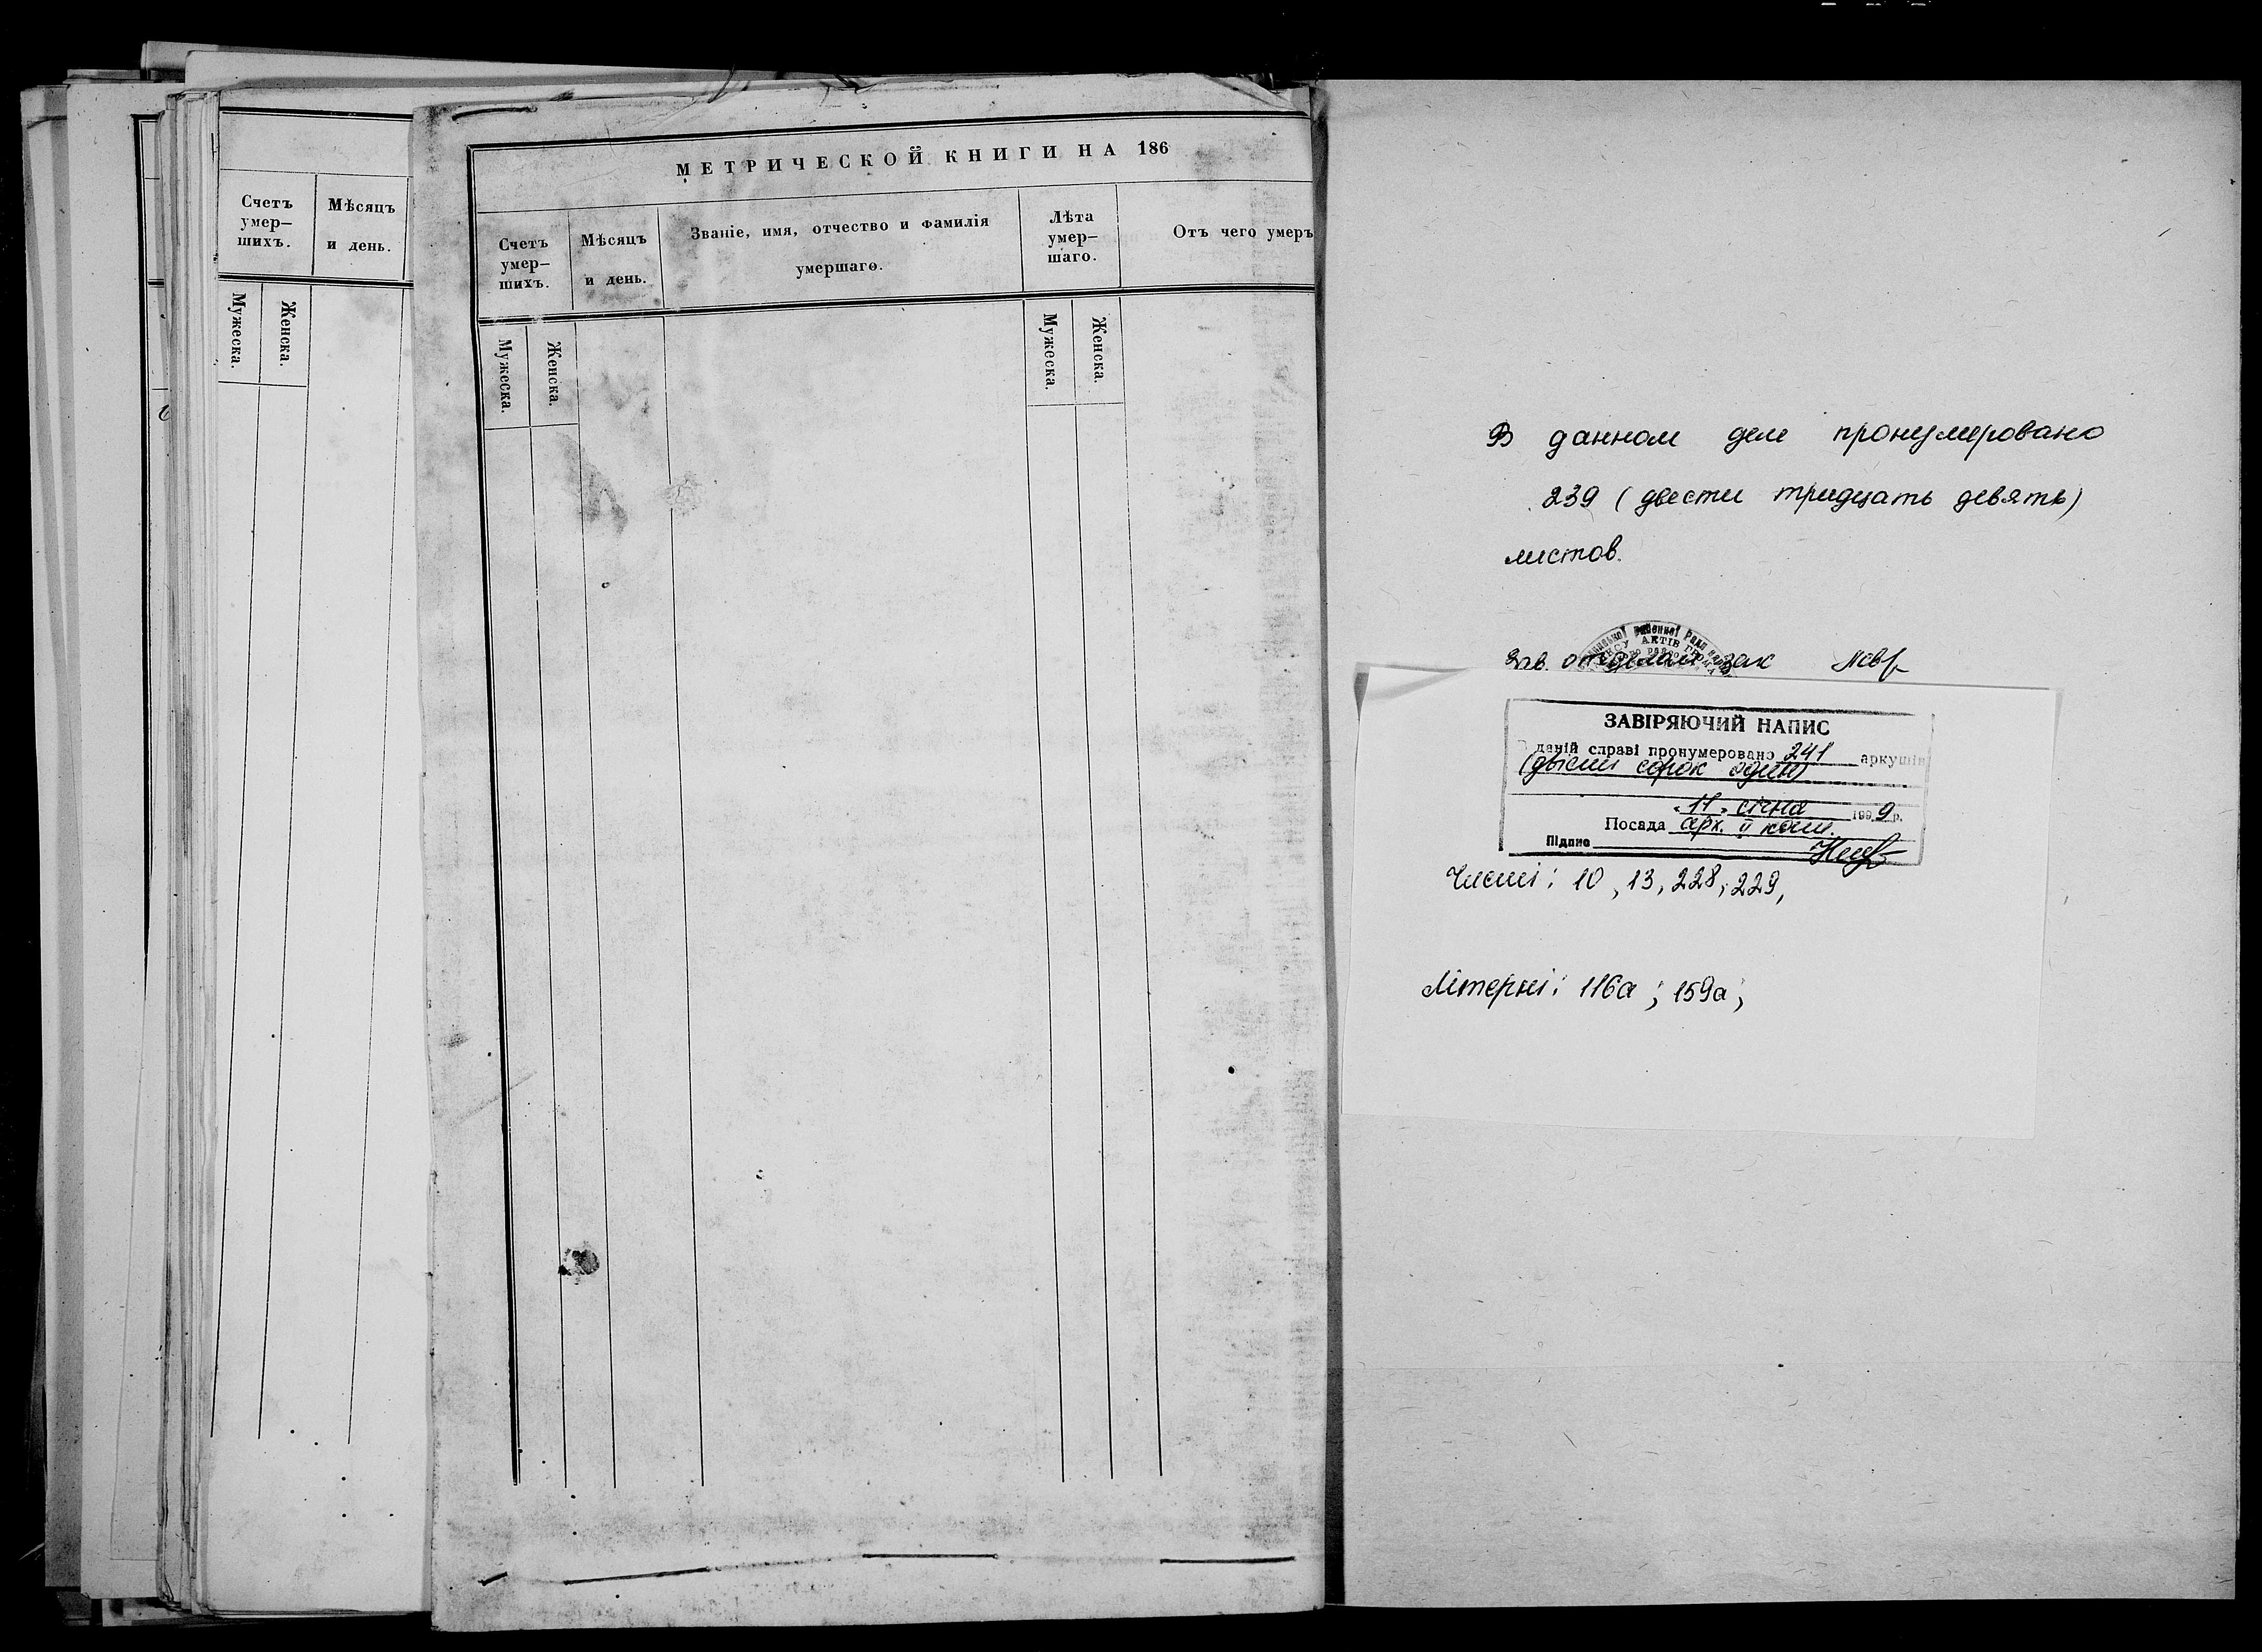 Счетъ
умер-
шихъ.
Мѣсяцъ
и день.
Мужеска.
Женска.
МЕТРИЧЕСКОЙ КНИГИ НА 186
Счетъ
умер-
шихъ.
Мѣсяцъ
и день.
Званіе, имя, отчество и фамилія
умершаго.
Лѣта
умер-
шаго.
Отъ чего умеръ
Мужеска.
Женска.
Мужеска.
Женска.
В данном деле пронумеровано
239 (двести тридцать девять)
листов.
Зав. отделом
ЗАВІРЯЮЧИЙ НАПИС
даній справі пронумеровано 241 аркушів
(двісті сорок один)
"11" січня 1999 р.
Посада арх. II кат.
Підпис
Чисті: 10, 13, 228, 229,
Літерні: 116а; 159а;